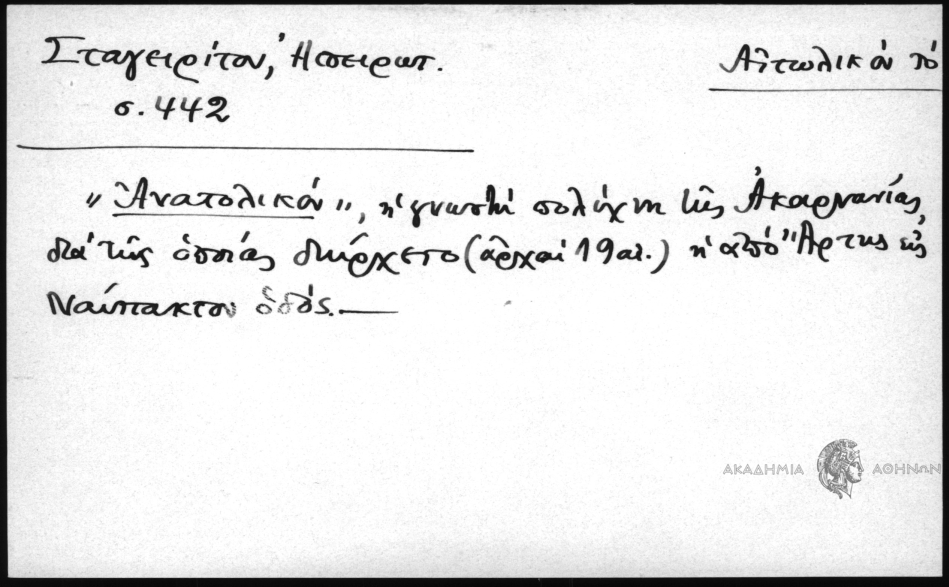 Σταγειρίτου, Ἠπειρωτ.
σ. 442
Αἰτωλικὸν τὸ
"Ἀνατολικόν", ἡ γνωστὴ πολίχνη τῆς Ἀκαρνανίας,
διὰ τῆς ὁποίας διήρχετο (ἀρχαὶ 19 αἰ.) ἡ ἀπὸ Ἄρτης εἰς
Ναύπακτον ὁδός.—
ΑΚΑΔΗΜΙΑ ΑΘΗΝΩΝ